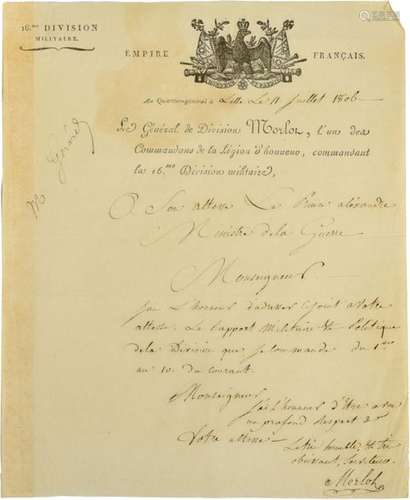 16.me DIVISION
MILITAIRE.
EMPIRE FRANÇAIS.
Au Quartier-général à Lille Le 11 Juillet 1806
Le Général de Division Merlot, l'un des
Commandans de la Légion d'honneur, commandant
la 16.me Division militaire,
A Son altesse Le Prince alexandre
Ministre de la Guerre
Monseigneur
J'ai L'honneur d'adresser cijoint a Votre
altesse Le rapport Militaire & Politique
de la Division que je commande du 1.er
au 10 du courant.
Monseigneur
J'ai L'honneur d'être avec
un profond respect de
Votre altesse
Le très humble & très
obéissant Serviteur
Merlot